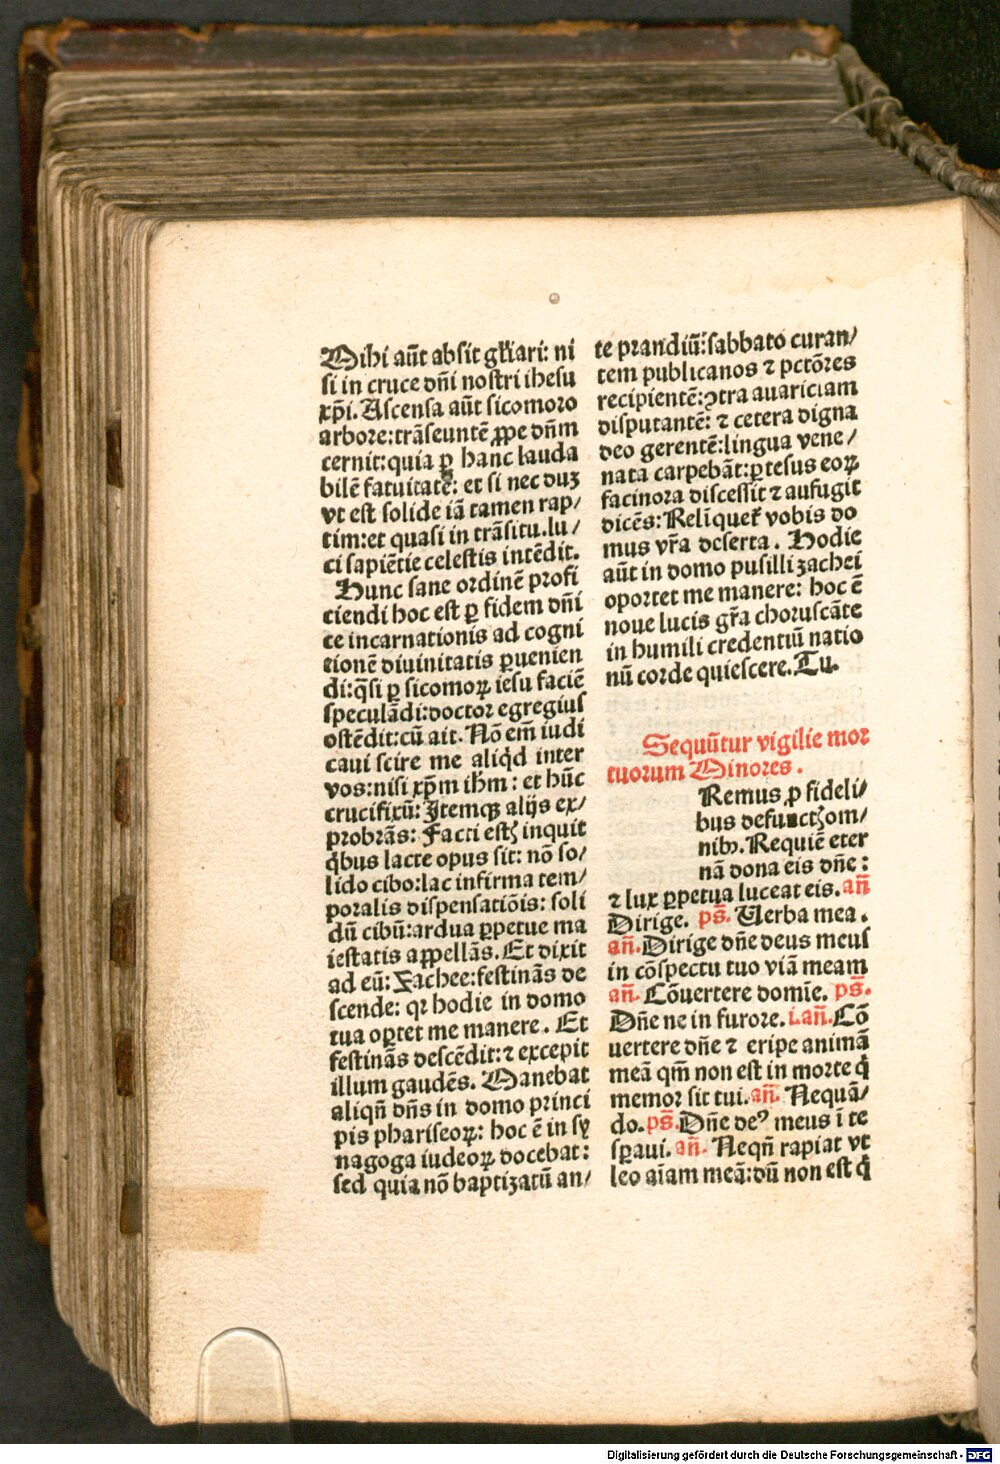 Mihi aūt absit gl̄iari: ni
si in cruce dn̄i nostri ihesu
xp̄i. Ascensa aūt sicomoro
arbore: trāseuntē ꝓpe dn̄m
cernit: quia ꝑ hanc lauda
bilē fatuitatē: et si nec duꝫ
vt est solide iā tamen rap/
tim: et quasi in trāsitu. lu/
ci sapiētie celestis intēdit.
Hunc sane ordinē profi
ciendi hoc est ꝑ fidem dn̄i
ce incarnationis ad cogni
tionē diuinitatis ꝑuenien
di: q̄si ꝑ sicomoꝝ iesu faciē
speculādi: doctor egregius
ostēdit: cū ait. Nō em̄ iudi
caui scire me aliq̇d inter
vos: nisi xp̄m ih̄m: et hūc
crucifixū: Itemqꝫ alijs ex/
probrās: Facti estꝭ inquit
q̇bus lacte opus sit: nō so/
lido cibo: lac infirma tem/
poralis dispensatiōis: soli
dū cibū: ardua ꝑpetue ma
iestatis aꝓpellās. Et dixit
ad eū: Zachee: festinās de
scende: qꝛ hodie in domo
tua oꝑtet me manere. Et
festinās descēdit: ⁊ excepit
illum gaudēs. Manebat
aliqn̄ dn̄s in domo princi
pis phariseoꝝ: hoc ē in sy
nagoga iudeoꝝ docebat:
sed quia nō baptizatū an/
te prandiū: sabbato curan/
tem publicanos ⁊ pctōres
recipientē: ꝯtra auariciam
disputantē: ⁊ cetera digna
deo gerentē: lingua vene/
nata carpebāt: ꝑtesus eoꝝ
facinora discessit ⁊ aufugit
dicēs: Relīquet̄ vobis do
mus vr̄a deserta. Hodie
aūt in domo pusilli zachei
oportet me manere: hoc ē
noue lucis gr̄a choruscāte
in humili credentiū natio
nū corde quiescere. Tu.
Sequūtur vigilie mor
tuorum Minores.
Remus ꝓ fideli/
bus defunctꝭ om/
nibꝰ. Requiē eter
nā dona eis dn̄e:
⁊ lux ꝑpetua luceat eis. an̄
Dirige. ps̄. Uerba mea.
an̄. Dirige dn̄e deus meus
in cōspectu tuo viā meam
an̄. Cōuertere domīe. ps̄.
Dn̄e ne in furore. i. an̄. Cō
uertere dn̄e ⁊ eripe animā
meā qm̄ non est in morte q̇
memor sit tui. an̄. Nequā/
do. ps̄. Dn̄e deꝰ meus ī te
sꝑaui. an̄. Neqn̄ rapiat vt
leo aīam meā: dū non est q̇
Digitalisierung gefördert durch die Deutsche Forschungsgemeinschaft - DFG